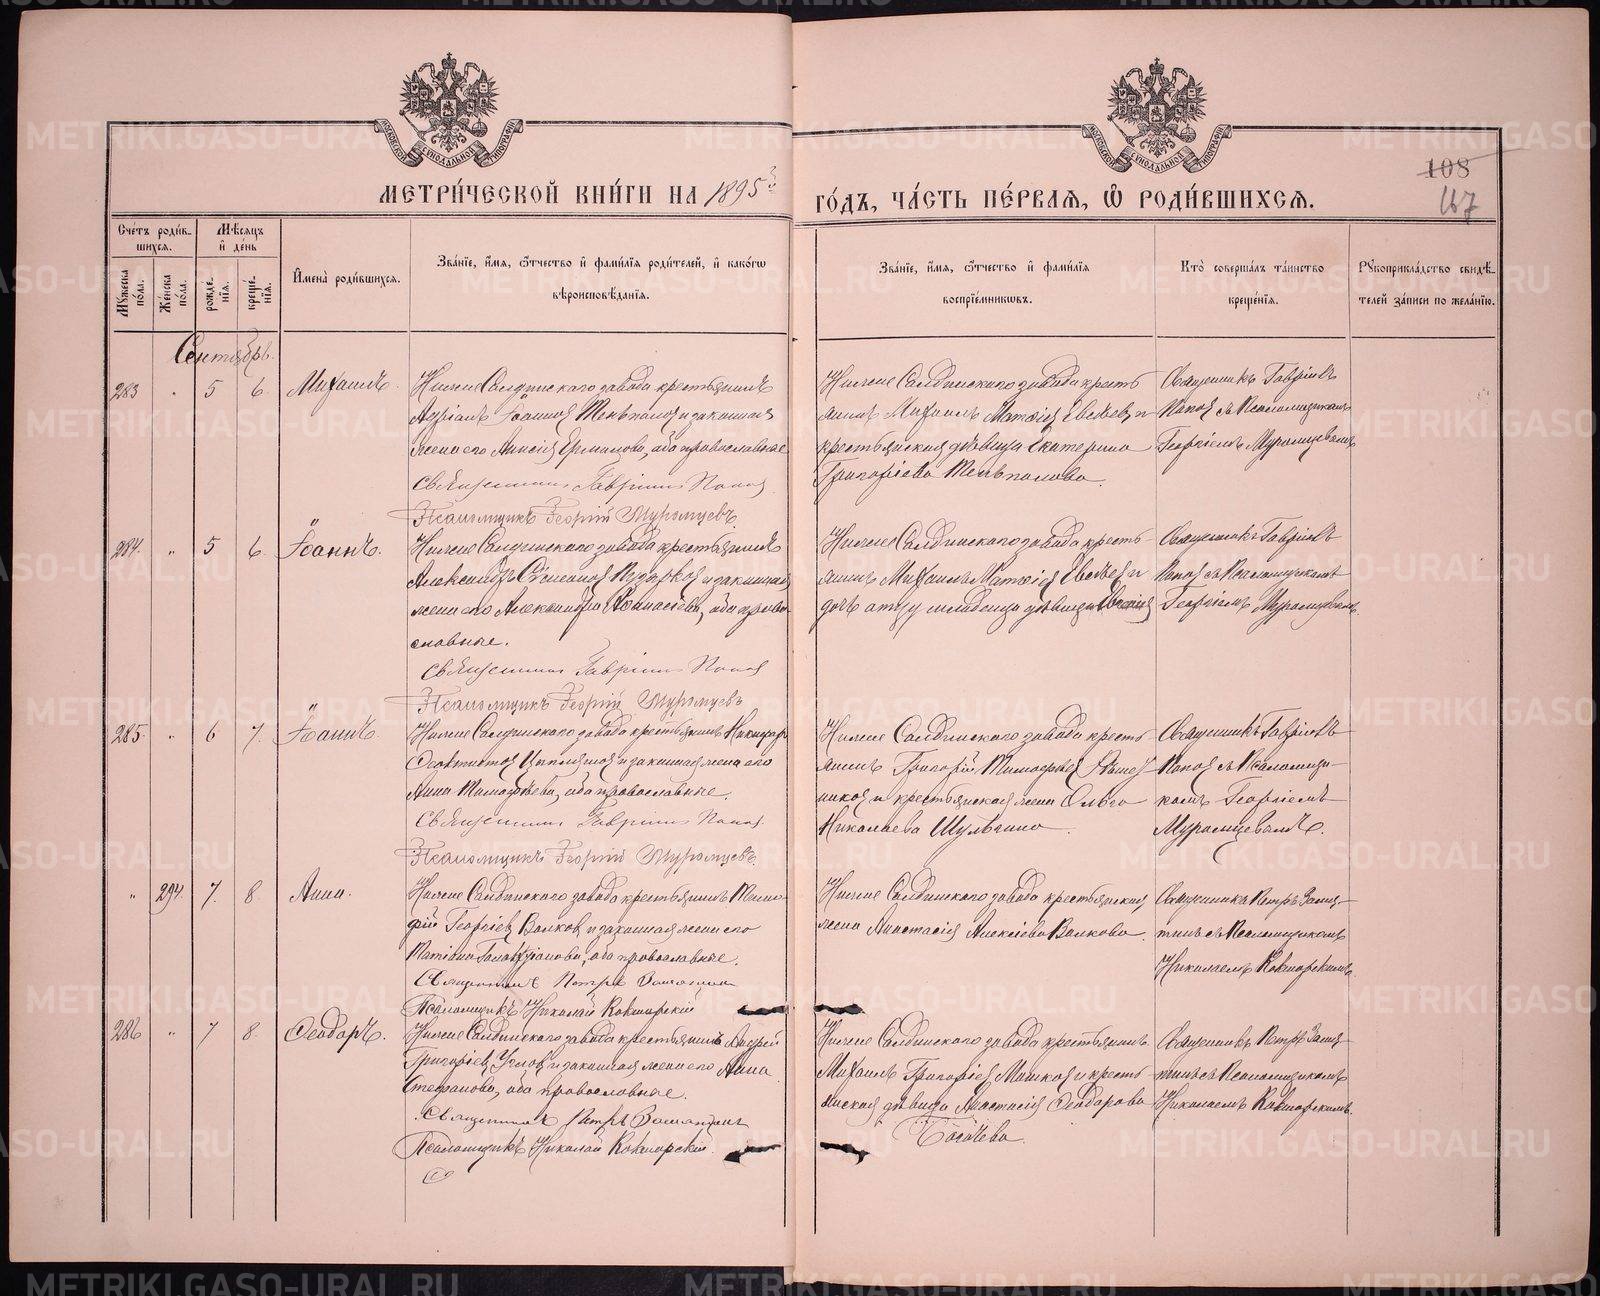 МЕТРИ́ЧЕСКОЙ КНИ́ГИ НА 1895 ГО́ДЪ, ЧА́СТЬ ПЕ́РВАЯ, Ѡ РОДИ́ВШИХСЯ.
108
167
Сче́тъ роди́вшихся.
Му́жеска по́ла.
Же́нска по́ла.
Мѣ́сяцъ и҆ де́нь
рожде́нїя.
креще́нїя.
И҆мена̀ роди́вшихся.
Зва́нїе, и҆́мя, ѻ҆́тчество и҆ фами́лїя роди́телей, и҆ како́гѡ
вѣроисповѣ́данїя.
Зва́нїе, и҆́мя, ѻ҆́тчество и҆ фами́лїя
воспрїе́мникѡвъ.
Кто̀ соверша́лъ та́инство
креще́нїя.
Рꙋкоприкла́дство свидѣ́телей за́писи по жела́нїю.
Сентябрь.
283 " 5 6 Михаилъ.
Нижне Салдинскаго завода крестьянинъ
Адріанъ Іоанновъ и законная
жена его Анисія Ермилова, оба православные
Священникъ Гавріилъ Поповъ
Псаломщикъ Георгій Муромцевъ.
Нижне Салдинскаго завода кресть
янинъ Михаилъ Матѳіевъ Евсѣевъ и
крестьянская дѣвица Екатерина
Григоріева
Священникъ Гавріилъ
Поповъ съ Псаломщикомъ
Георгіемъ Муромцевымъ
284. " 5 6. Іоаннъ.
Нижне Салдинскаго завода крестьянинъ
Александръ Стефановъ и законная
жена его Александра Аѳанасіева, оба право
славные.
Священникъ Гавріилъ Поповъ
Псаломщикъ Георгій Муромцевъ
Нижне Салдинскаго завода кресть-
янинъ Михаилъ Матѳіевъ Евсѣевъ и
дочь отцу младенца дѣвица
Священникъ Гавріилъ
Поповъ съ Псаломщикомъ
Георгіемъ Муромцевымъ.
285. " 6 7. Іоаннъ.
Нижне Салдинскаго завода крестьянинъ Никифоръ
Ѳеоктистовъ и законная жена его
Анна Тимоѳеева, оба православные.
Священникъ Гавріилъ Поповъ.
Псаломщикъ Георгій Муромцевъ.
Нижне Салдинскаго завода кресть-
янинъ Григорій Тимоѳеевъ
и крестьянская жена Ольга
Николаева Шульгина.
Священникъ Гавріилъ
Поповъ съ Псаломщи-
комъ Георгіемъ
Муромцевымъ.
" 294. 7. 8. Анна.
Нижне Салдинскаго завода крестьянинъ Тимо
фій Георгіевъ Волковъ и законная жена его
оба православные.
Священникъ Петръ
Псаломщикъ Николай
Нижне Салдинскаго завода крестьянская
жена Анастасія Алексіева Волкова.
Священникъ Петръ
съ Псаломщикомъ
Николаемъ
286 " 7 8. Ѳеодоръ.
Нижне Салдинскаго завода крестьянинъ Андрей
Григоріевъ и законная жена его Анна
Стефанова, оба православные.
Священникъ Петръ
Псаломщикъ Николай
Нижне Салдинскаго завода крестьянинъ
Михаилъ Григоріевъ и кресть-
янская дѣвица Анастасія Ѳеодорова
Священникъ Петръ
съ Псаломщикомъ
Николаемъ
METRIKI.GASO-URAL.RU